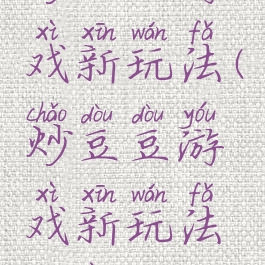 xì xīn wán fǎ
戏新玩法(
chǎo dòu dòu yóu
炒豆豆游
xì xīn wán fǎ
戏新玩法